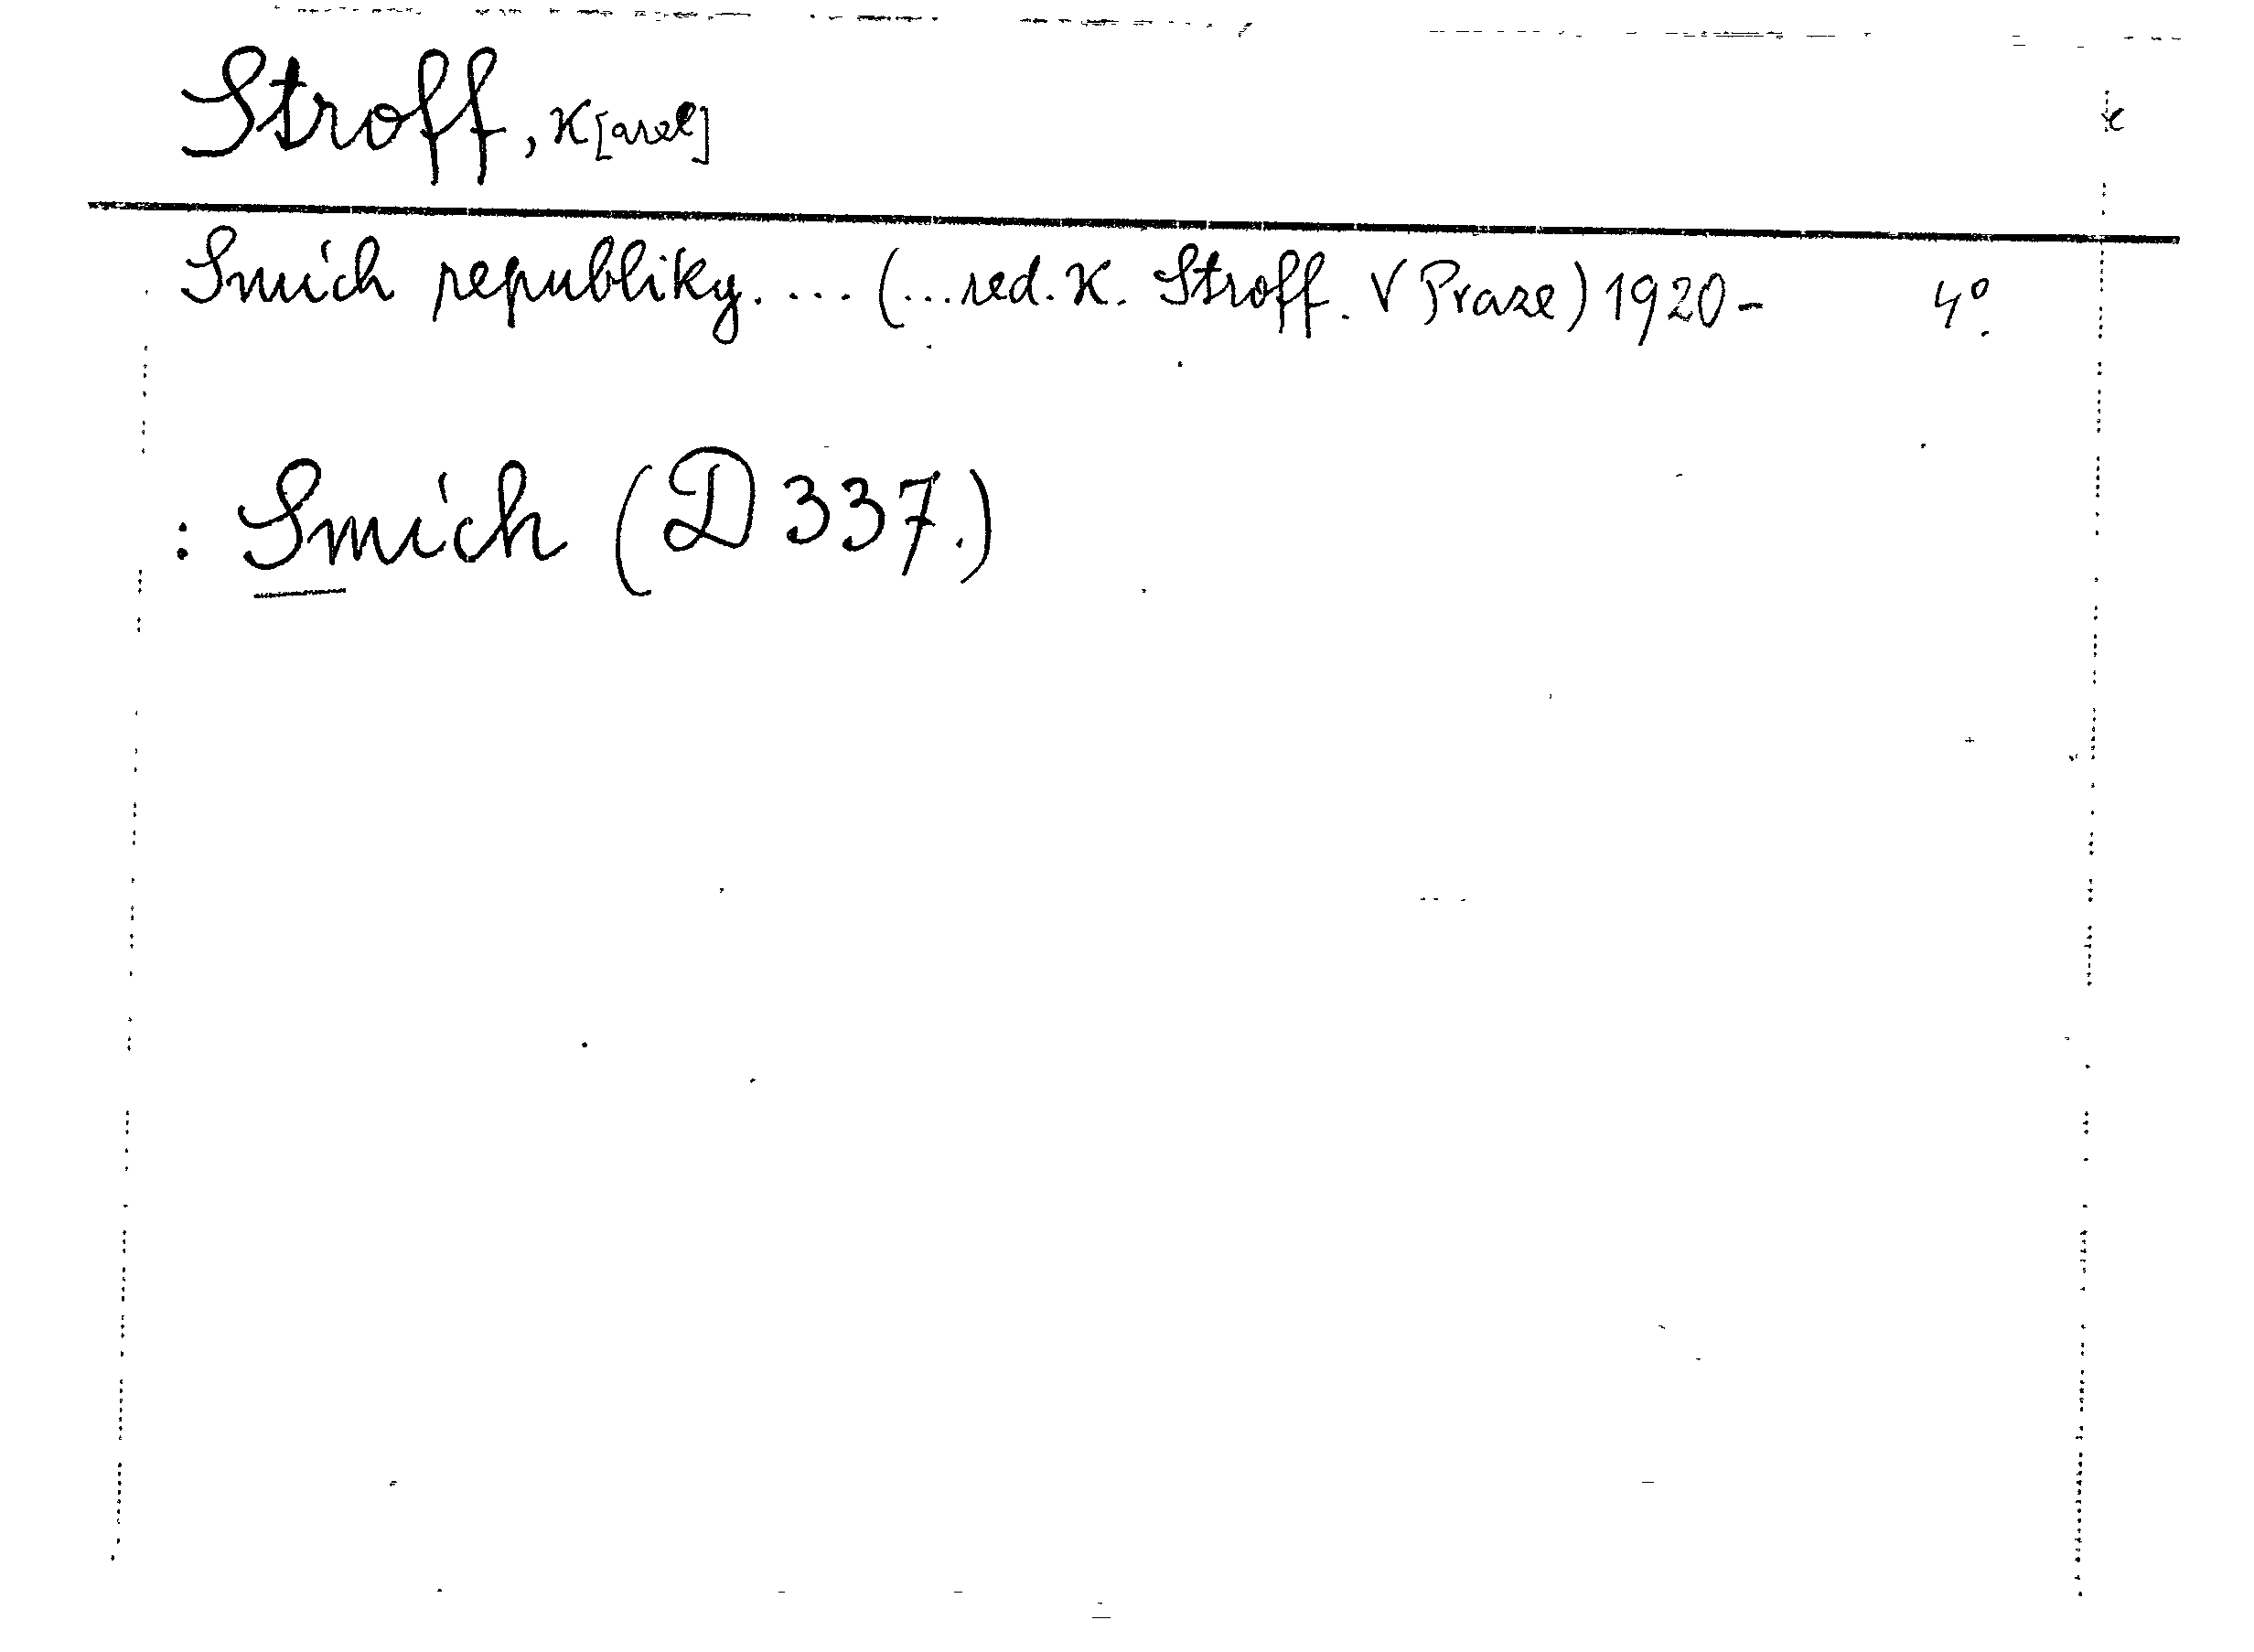 Stroff, K[arel]
Smích republiky. ... (...red. K. Stroff. V Praze) 1920- 4°.
: Smích (D 337.)